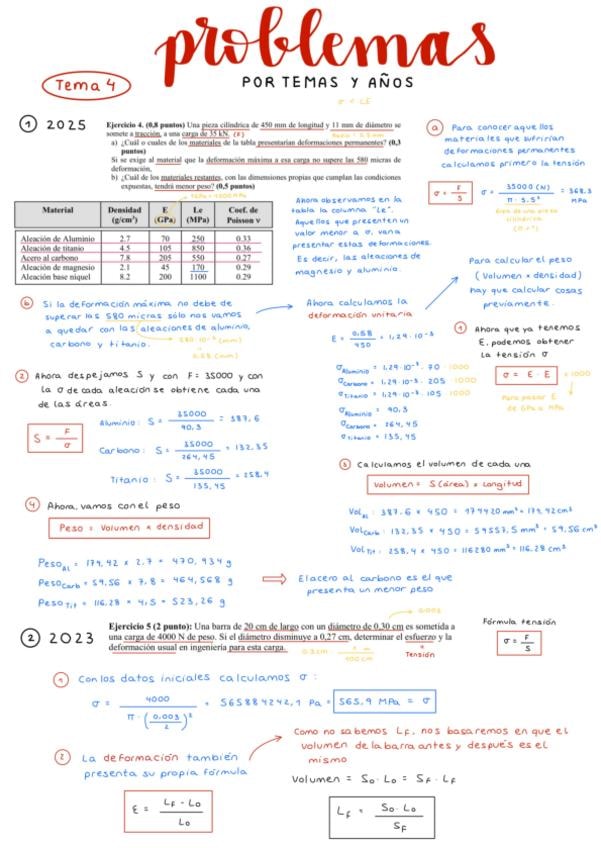 problemas
POR TEMAS Y AÑOS
Tema 4
1 2025
Ejercicio 4. (0,8 puntos) Una pieza cilíndrica de 450 mm de longitud y 11 mm de diámetro se
somete a tracción, a una carga de 35 kN. (F)
a) ¿Cuál o cuales de los materiales de la tabla presentarían deformaciones permanentes? (0,3
puntos)
Si se exige al material que la deformación máxima a esa carga no supere las 580 micras de
deformación,
b) ¿Cuál de los materiales restantes, con las dimensiones que cumplan las condiciones
expuestas, tendrá menor peso? (0,5 puntos)
Material Densidad (g/cm³) E (GPa) Le (MPa) Coef. de Poisson ν
Aleación de Aluminio 2.7 70 250 0.33
Aleación de titanio 4.5 105 850 0.36
Acero al carbono 7.8 205 550 0.27
Aleación de magnesio 2.1 45 170 0.29
Aleación base níquel 8.2 200 1100 0.29
a Para conocer aquellos
materiales que sufrirían
deformaciones permanentes
calculamos primero la tensión
σ = F/S
σ = 35000 (N) / π · 5.5² = 368.3 MPa
Área de una pieza
cilíndrica
Ahora observamos en la
tabla la columna "Le".
Aquellos que presenten un
valor menor a σ, van a
presentar estas deformaciones.
Es decir, las aleaciones de
magnesio y aluminio.
Para calcular el peso
(Volumen x densidad)
hay que calcular cosas
previamente.
b Si la deformación máxima no debe de
superar las 580 micras sólo nos vamos
a quedar con las aleaciones de aluminio,
carbono y titanio.
580·10⁻³ (mm)
0,58 (mm)
Ahora calculamos la
deformación unitaria
E = 0,58 / 450 = 1,29·10⁻³
σAluminio = 1,29·10⁻³ · 70 · 1000
σCarbono = 1,29·10⁻³ · 205 · 1000
σTitanio = 1,29·10⁻³ · 105 · 1000
σAluminio = 90,3
σCarbono = 264,45
σTitanio = 135,45
1 Ahora que ya tenemos
E, podemos obtener
la tensión σ
σ = E · E x 1000
Para pasar E
de GPa a MPa
2 Ahora despejamos S y con F = 35000 y con
la σ de cada aleación se obtiene cada una
de las áreas.
S = F/σ
Aluminio: S = 35000 / 90,3 = 387,6
Carbono: S = 35000 / 264,45 = 132,35
Titanio: S = 35000 / 135,45 = 258.4
3 Calculamos el volumen de cada una
Volumen = S(área) x Longitud
VolAl : 387.6 x 450 = 174420 mm³ = 174,42 cm³
VolCarb : 132,35 x 450 = 59557,5 mm³ = 59,56 cm³
VolTit : 258.4 x 450 = 116280 mm³ = 116.28 cm³
4 Ahora, vamos con el peso
Peso = Volumen x densidad
PesoAl = 174,42 x 2,7 = 470,934 g
PesoCarb = 59,56 x 7,8 = 464,568 g
PesoTit = 116,28 x 4,5 = 523,26 g
⇒ El acero al carbono es el que
presenta un menor peso
2 2023
Ejercicio 5 (2 punto): Una barra de 20 cm de largo con un diámetro de 0,30 cm es sometida a
una carga de 4000 N de peso. Si el diámetro disminuye a 0,27 cm, determinar el esfuerzo y la
deformación usual en ingeniería para esta carga.
0.003
Tensión
Fórmula tensión
σ = F/S
1 Con los datos iniciales calculamos σ :
σ = 4000 / π · (0,003 / 2)² = 565884242,1 Pa = 565,9 MPa = σ
2 La deformación también
presenta su propia fórmula
E = LF - L0 / L0
Como no sabemos LF, nos basaremos en que el
volumen de la barra antes y después es el
mismo
Volumen = S0 · L0 = SF · LF
LF = S0 · L0 / SF